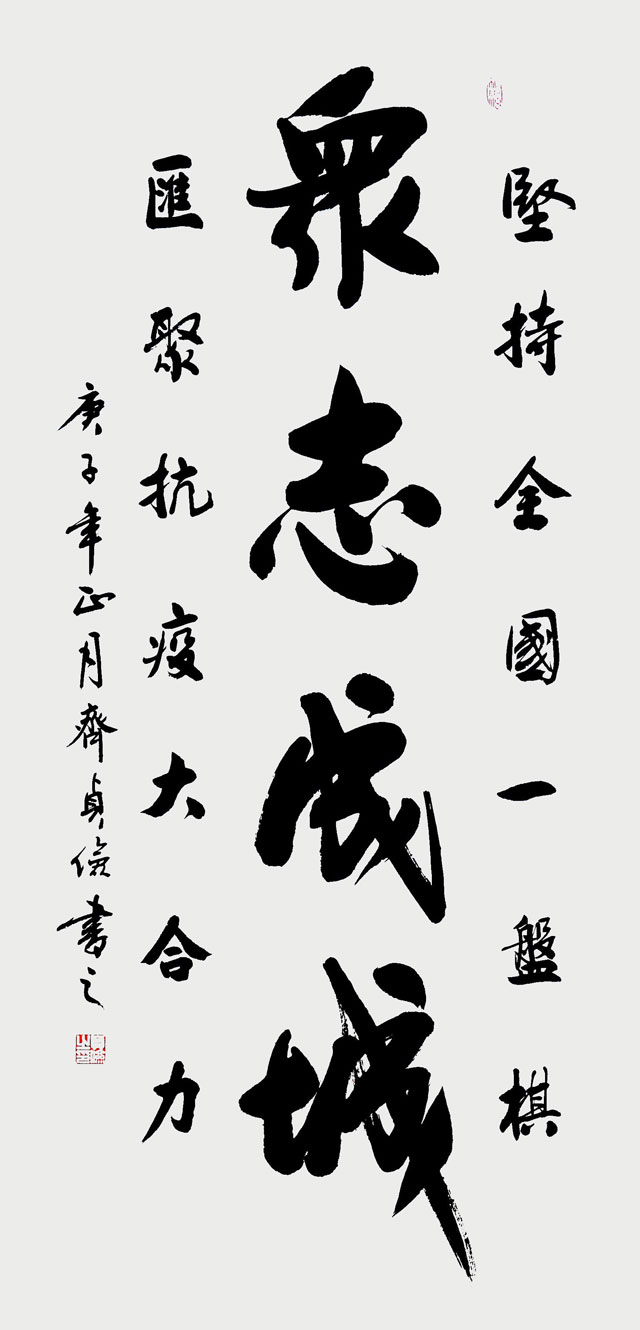 堅持全國一盤棋
眾志成城
匯聚抗疫大合力
庚子年正月齊貞儉書之